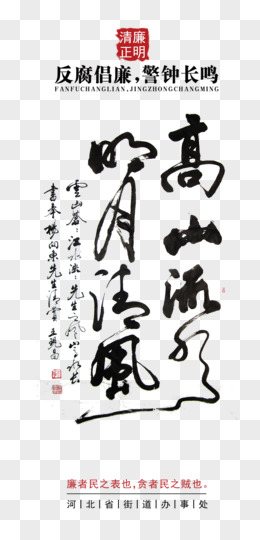 清廉
正明
反腐倡廉,警钟长鸣
FANFUCHANGLIAN,JINGZHONGCHANGMING
高山流水
明月清風
雲山蒼〻江水泱〻先生之風山高水長
書奉楊向東先生清賞
廉者民之表也,贪者民之贼也。
河|北|省|街|道|办|事|处